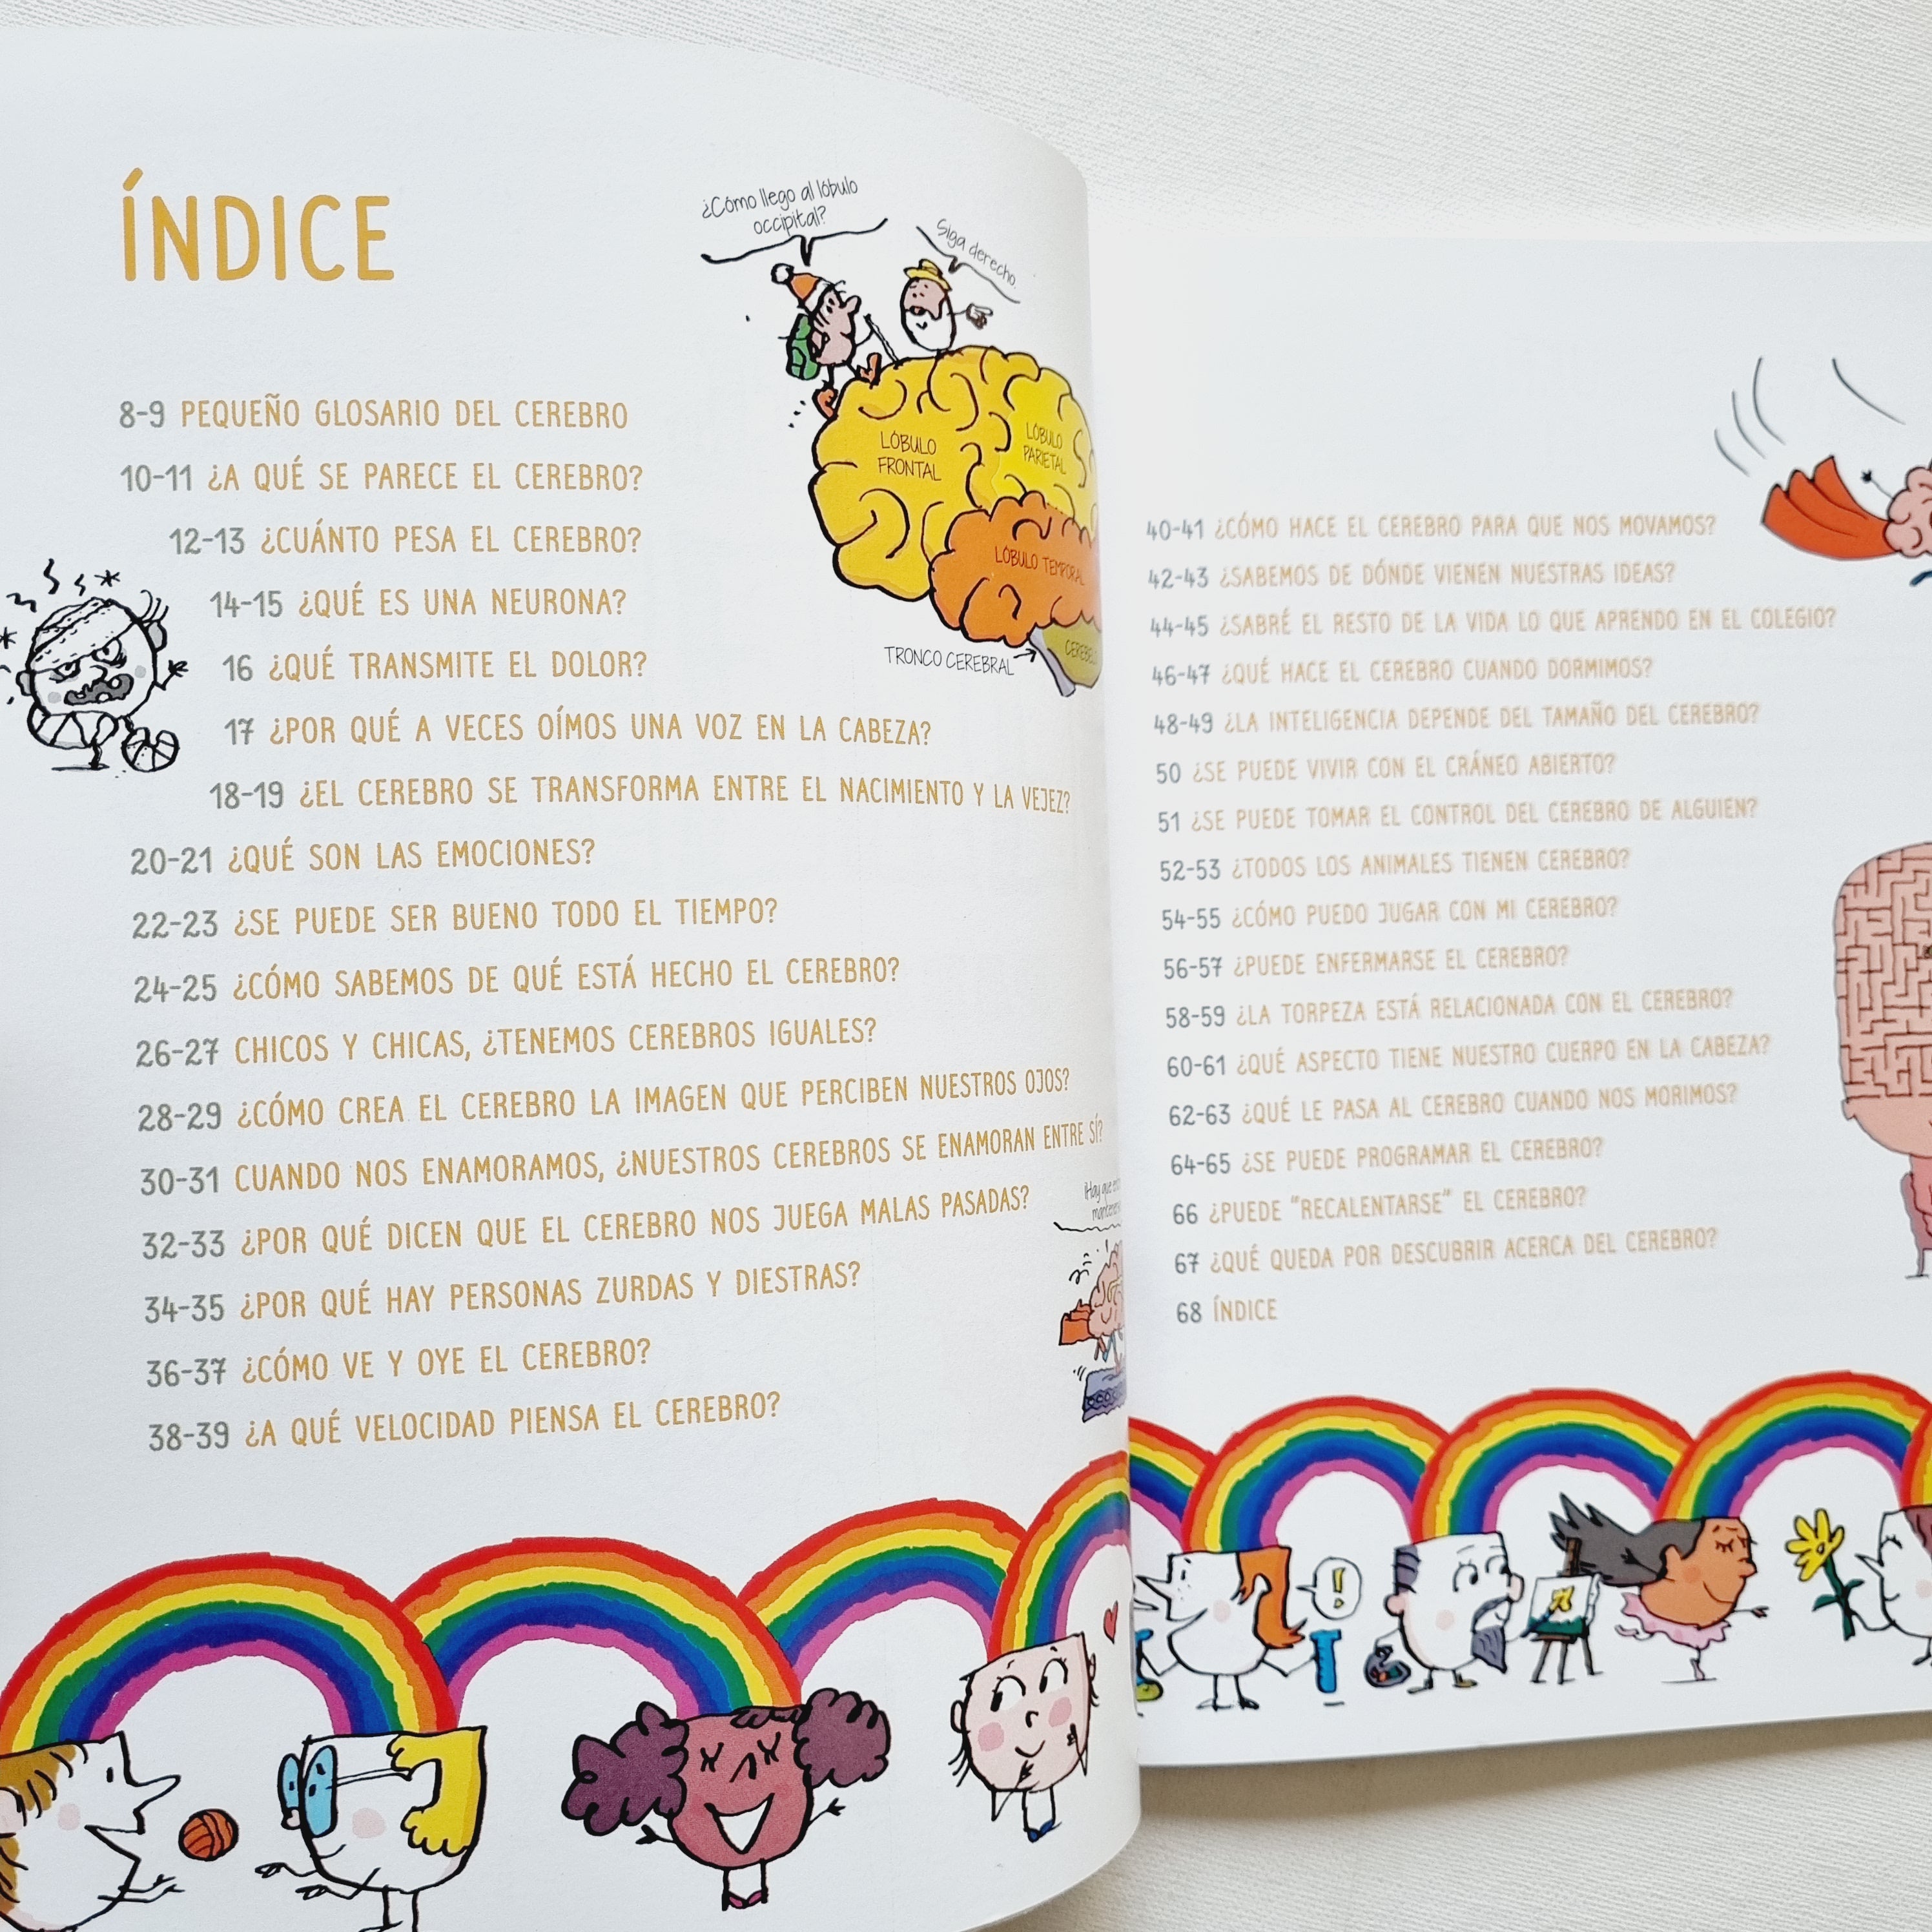 ÍNDICE
¿Cómo llego al lóbulo
occipital?
Siga derecho.
LÓBULO
FRONTAL
LÓBULO
PARIETAL
LÓBULO TEMPORAL
TRONCO CEREBRAL
8-9 PEQUEÑO GLOSARIO DEL CEREBRO
10-11 ¿A QUÉ SE PARECE EL CEREBRO?
12-13 ¿CUÁNTO PESA EL CEREBRO?
14-15 ¿QUÉ ES UNA NEURONA?
16 ¿QUÉ TRANSMITE EL DOLOR?
17 ¿POR QUÉ A VECES OÍMOS UNA VOZ EN LA CABEZA?
18-19 ¿EL CEREBRO SE TRANSFORMA ENTRE EL NACIMIENTO Y LA VEJEZ?
20-21 ¿QUÉ SON LAS EMOCIONES?
22-23 ¿SE PUEDE SER BUENO TODO EL TIEMPO?
24-25 ¿CÓMO SABEMOS DE QUÉ ESTÁ HECHO EL CEREBRO?
26-27 CHICOS Y CHICAS, ¿TENEMOS CEREBROS IGUALES?
28-29 ¿CÓMO CREA EL CEREBRO LA IMAGEN QUE PERCIBEN NUESTROS OJOS?
30-31 CUANDO NOS ENAMORAMOS, ¿NUESTROS CEREBROS SE ENAMORAN ENTRE SÍ?
32-33 ¿POR QUÉ DICEN QUE EL CEREBRO NOS JUEGA MALAS PASADAS?
34-35 ¿POR QUÉ HAY PERSONAS ZURDAS Y DIESTRAS?
36-37 ¿CÓMO VE Y OYE EL CEREBRO?
38-39 ¿A QUÉ VELOCIDAD PIENSA EL CEREBRO?
¡Hay que
40-41 ¿CÓMO HACE EL CEREBRO PARA QUE NOS MOVAMOS?
42-43 ¿SABEMOS DE DÓNDE VIENEN NUESTRAS IDEAS?
44-45 ¿SABRÉ EL RESTO DE LA VIDA LO QUE APRENDO EN EL COLEGIO?
46-47 ¿QUÉ HACE EL CEREBRO CUANDO DORMIMOS?
48-49 ¿LA INTELIGENCIA DEPENDE DEL TAMAÑO DEL CEREBRO?
50 ¿SE PUEDE VIVIR CON EL CRÁNEO ABIERTO?
51 ¿SE PUEDE TOMAR EL CONTROL DEL CEREBRO DE ALGUIEN?
52-53 ¿TODOS LOS ANIMALES TIENEN CEREBRO?
54-55 ¿CÓMO PUEDO JUGAR CON MI CEREBRO?
56-57 ¿PUEDE ENFERMARSE EL CEREBRO?
58-59 ¿LA TORPEZA ESTÁ RELACIONADA CON EL CEREBRO?
60-61 ¿QUÉ ASPECTO TIENE NUESTRO CUERPO EN LA CABEZA?
62-63 ¿QUÉ LE PASA AL CEREBRO CUANDO NOS MORIMOS?
64-65 ¿SE PUEDE PROGRAMAR EL CEREBRO?
66 ¿PUEDE "RECALENTARSE" EL CEREBRO?
67 ¿QUÉ QUEDA POR DESCUBRIR ACERCA DEL CEREBRO?
68 ÍNDICE
!